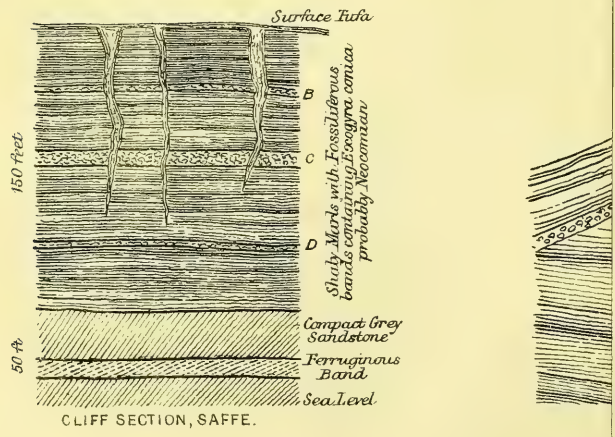 Surface Tufa
B
C
D
150 feet
Shaly Marls with Fossiliferous
bands containing Exogyra conica
probably Neocomian
Compact Grey
Sandstone
Ferruginous
Band
50 ft
Sea Level
CLIFF SECTION, SAFFE.